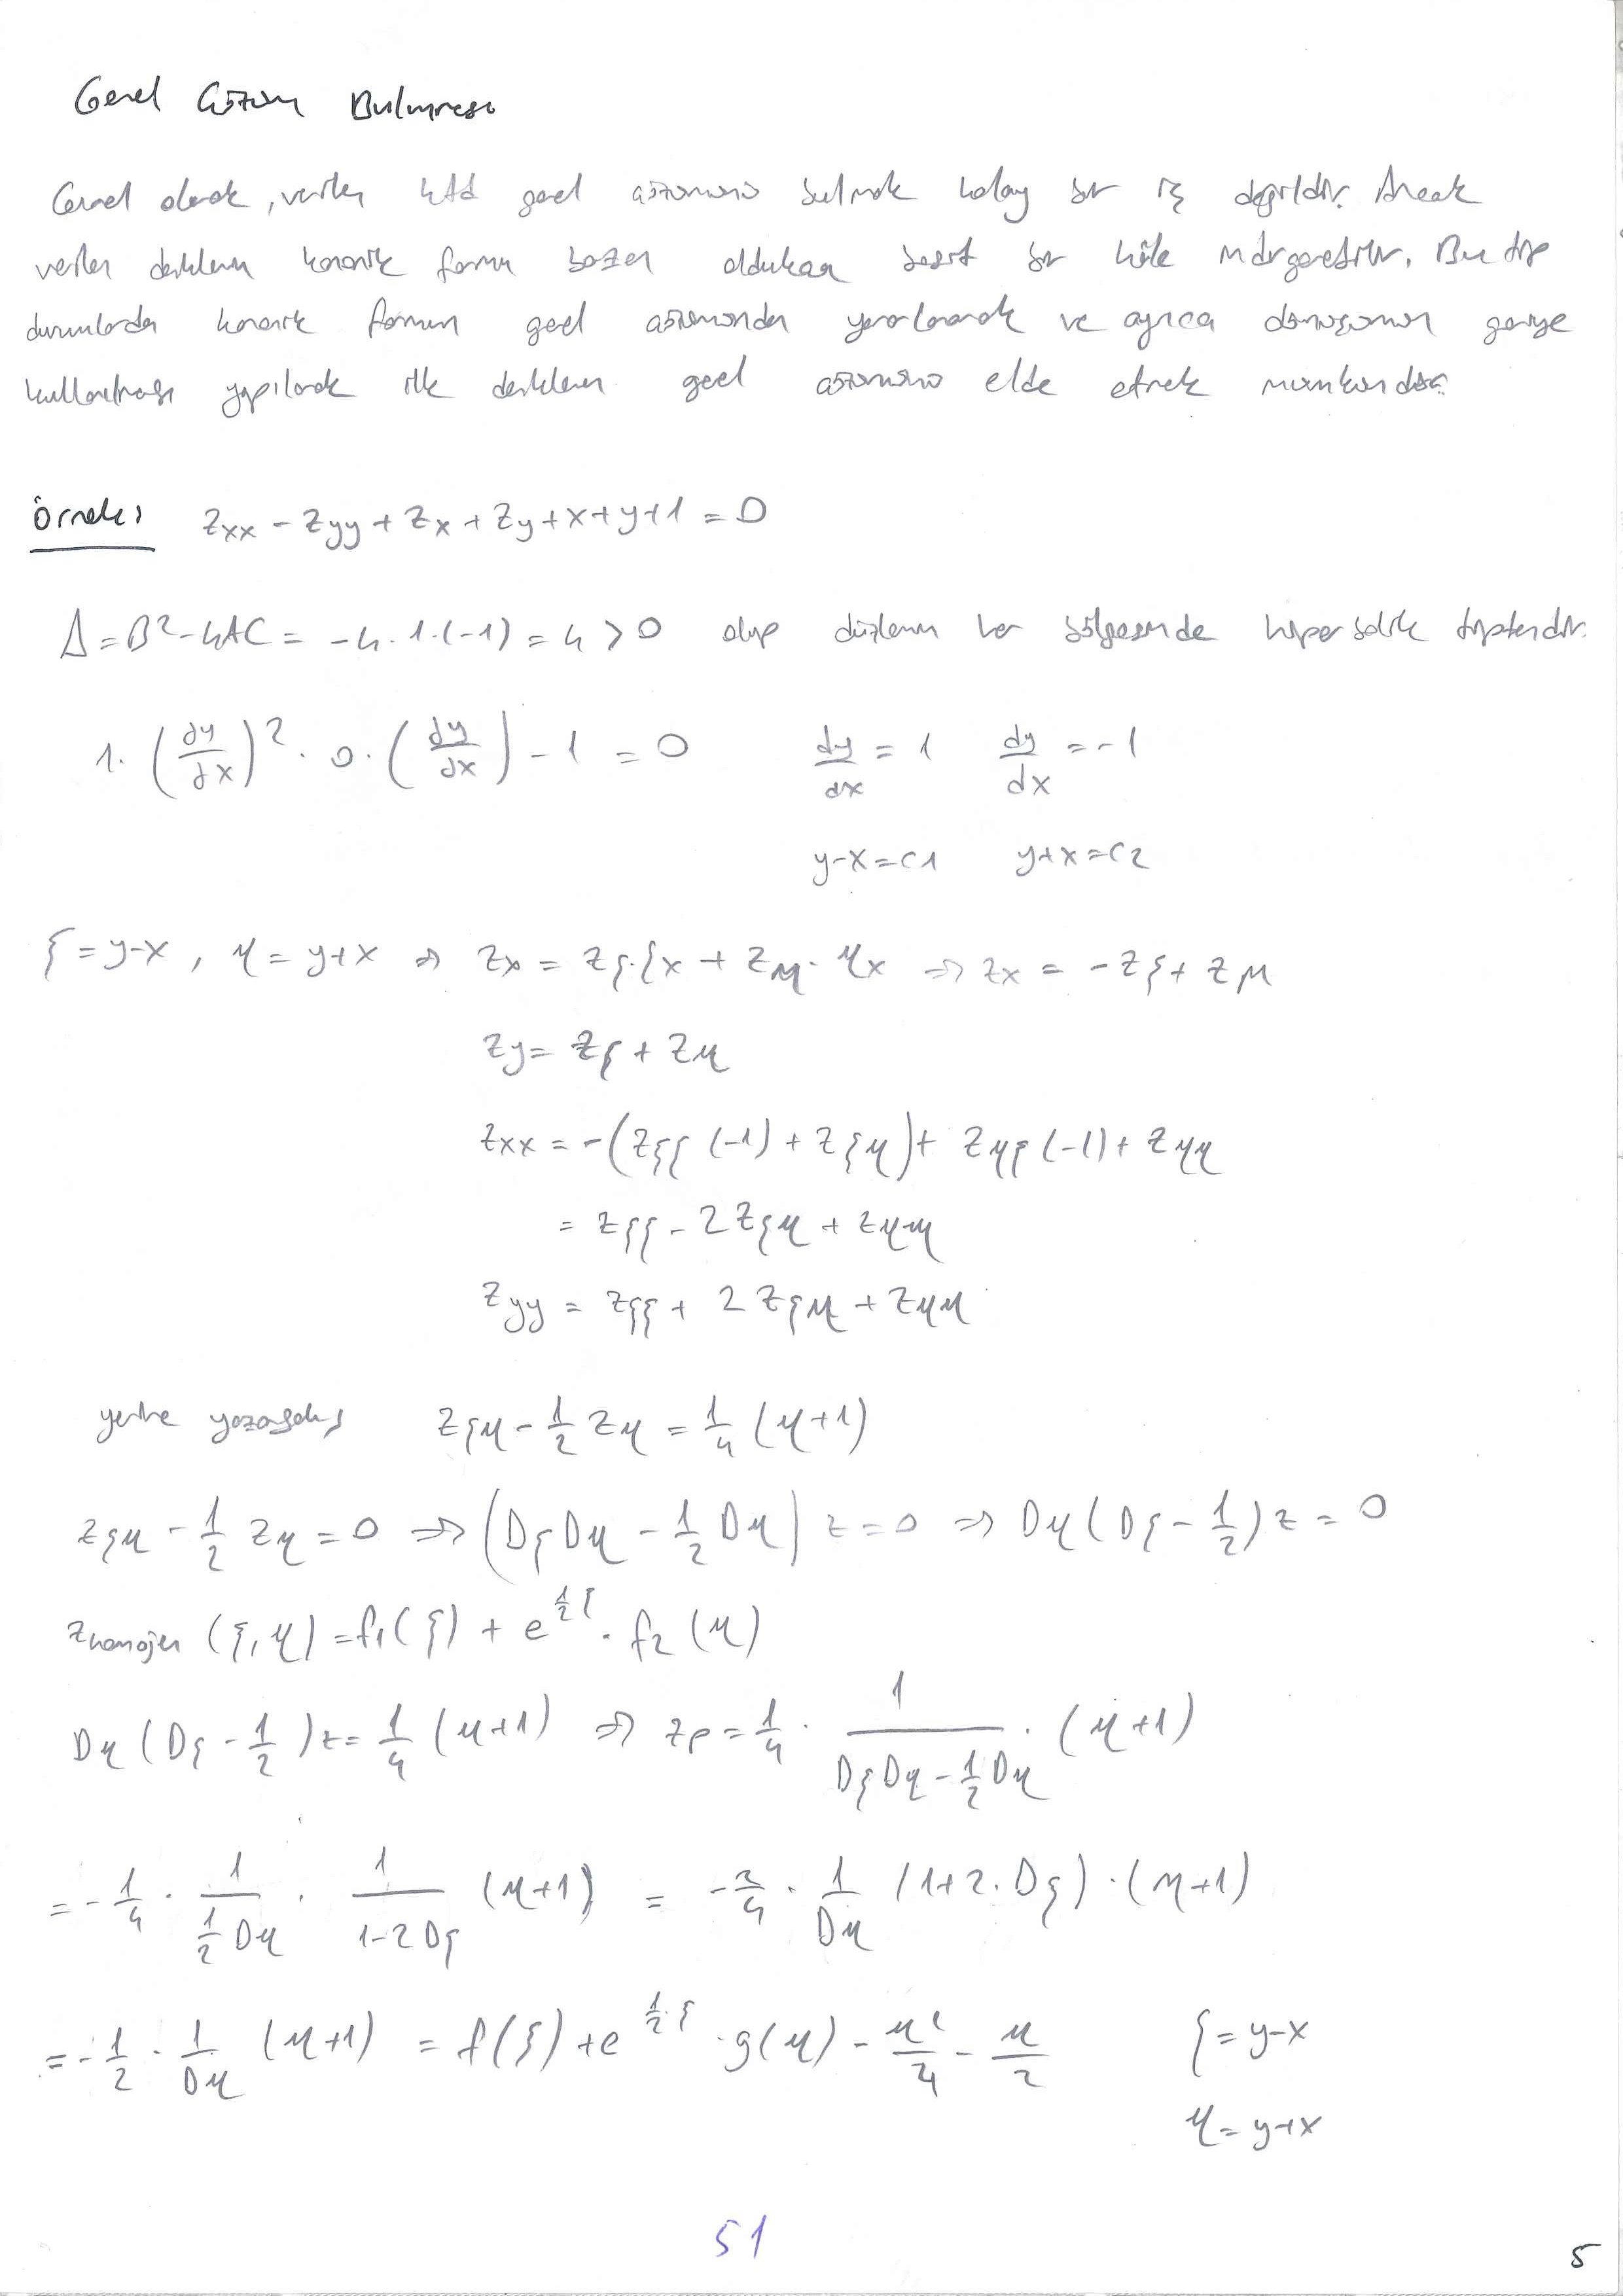 Genel Çözüm Bulunması
Genel olarak, verilen kdd genel çözümünü bulmak kolay bir iş değildir. Ancak
verilen denklemin kanonik formu bazen oldukça basit bir hale indirgenebilir. Bu tip
durumlarda kanonik formun genel çözümünden yararlanarak ve ayrıca dönüşümün geriye
kullanılması yapılarak ilk denklemin genel çözümünü elde etmek mümkündür.
Örnek: Zxx - Zyy + Zx + Zy + x + y + 1 = 0
Δ = B² - 4AC = -4.1.(-1) = 4 > 0 olup düzlemin her bölgesinde hiperbolik tiptendir.
1. (dy/dx)² . 0. (dy/dx) - 1 = 0 dy/dx = 1 dy/dx = -1
y-x=c1 y+x=c2
ξ = y-x , η = y+x ⇒ Zx = Zξ.ξx + Zη.ηx ⇒ Zx = -Zξ + Zη
Zy = Zξ + Zη
Zxx = -(Zξξ (-1) + Zξη) + Zηξ (-1) + Zηη
= Zξξ - 2Zξη + Zηη
Zyy = Zξξ + 2Zξη + Zηη
yerine yazarsak; Zξη - 1/2 Zη = 1/4 (η+1)
Zξη - 1/2 Zη = 0 ⇒ (DξDη - 1/2 Dη) z = 0 ⇒ Dη (Dξ - 1/2) z = 0
Zhomojen (ξ,η) = f1(ξ) + e^(1/2 ξ) . f2(η)
Dη (Dξ - 1/2) z = 1/4 (η+1) ⇒ zp = 1/4 . 1/(DξDη - 1/2 Dη) . (η+1)
= -1/4 . 1/(1/2 Dη) . 1/(1-2Dξ) (η+1) = -2/4 . 1/Dη (1+2.Dξ) . (η+1)
= -1/2 . 1/Dη (η+1) = f(ξ) + e^(1/2 ξ) . g(η) - η²/4 - η/2 ξ = y-x
η = y+x
51
5